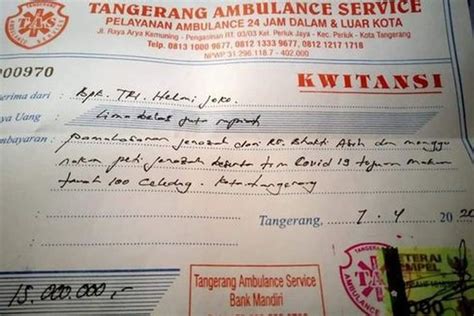 TANGERANG AMBULANCE SERVICE
PELAYANAN AMBULANCE 24 JAM DALAM & LUAR KOTA
Jl. Raya Arya Kemuning - Pengasinan RT. 03/03 Kel. Periuk Jaya - Kec. Periuk - Kota Tangerang
Telp. 0813 1000 9677, 0812 1333 9677, 0812 1217 1718
NPWP 31.296.118.7 - 402.000
P00970
KWITANSI
erima dari : Bpk. TRI. Helmi Joko.
ya Uang : Lima belas juta rupiah
mbayaran : pemakasaran jenazah dari RS. Bhakti Asih dm menggu
nakan peti jenazah beserta tem Covid 19 tujuan makam
tanah 100 Celedug. Kota tangerang
Tangerang, 7-4 20 20
TANGERANG
TAS
AMBULANCE
ETERAI
EMPEL
Tangerang Ambulance Service
Bank Mandiri
15.000.000,-